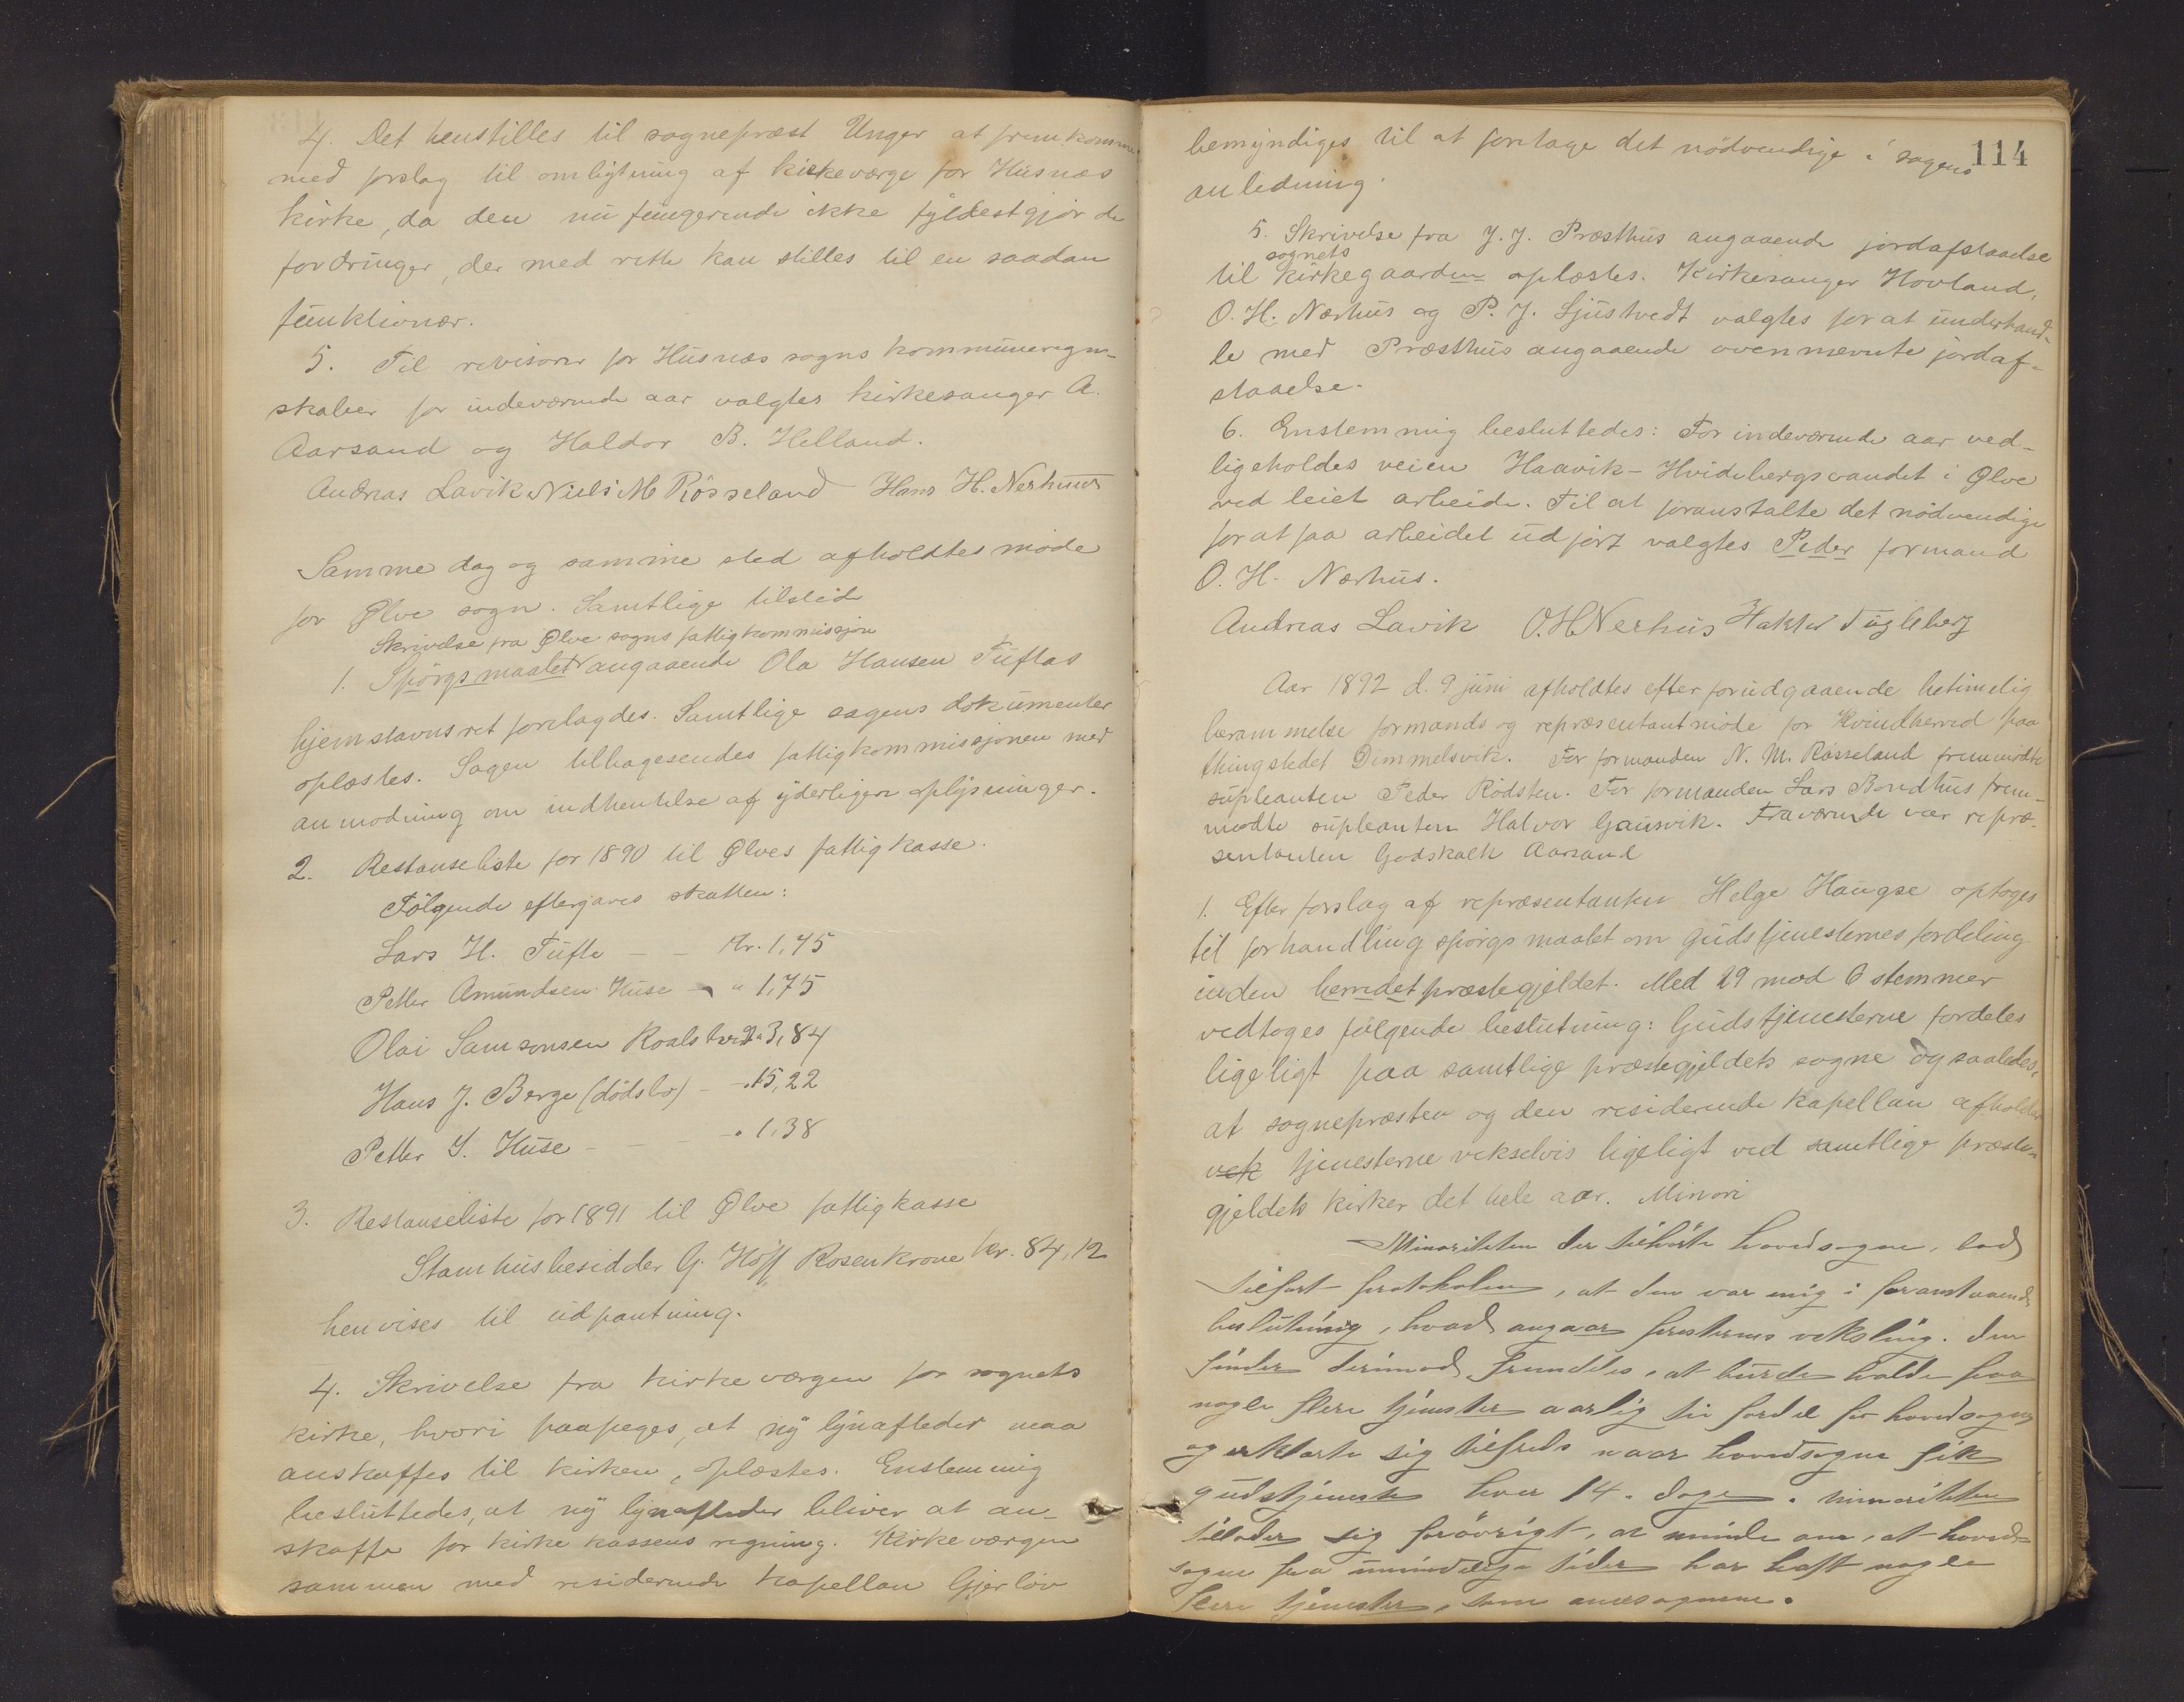 4. Det henstilles til sognepræst Unger at fremkomme
med forslag til omligtning af kirkeværge for Husnæs
kirke, da den nu fungerende ikke fyldestgjør de
fordringer, der med rette kan stilles til en saadan
funktionær.
5. Til revisorer for Husnæs sogns kommuneregn-
skaber for indeværende aar valgtes kirkesanger A.
Aarsand og Haldor B. Helland.
Andreas Lavik Niels M Rösseland Hans H. Nerhuus
Samme dag og samme sted afholdtes møde
for Ølve sogn. Samtlige tilstede
Skrivelse fra Ølve sogns fattigkommissjon
1. Spörgsmaalet angaaende Ola Hansen Tuftas
hjemstavnsret forelagdes. Samtlige sagens dokumenter
oplæstes. Sagen tilbagesendes fattigkommissjonen med
anmodning om indhentelse af yderligere oplysninger.
2. Restanseliste for 1890 til Ølves fattigkasse.
Følgende eftergaves skatten:
Lars H. Tufte - - Kr. 1,75
Petter Amundsen Huse - " 1,75
Olai Samsonsen Roalstvedt " 3,84
Hans J. Berge (dödsbo) - - " 15,22
Petter S. Huse - - - - " 1,38
3. Restanseliste for 1891 til Ølve fattigkasse
Stamhusbesidder G. Hoff Rosenkrone kr. 84,12
henvises til udpantning.
4. Skrivelse fra kirkeværgen for sognets
kirke, hvori paapeges, at ny lynafleder maa
anskaffes til kirken, oplæstes. Enstemmig
besluttedes, at ny lynafleder bliver at an-
skaffe for kirkekassens regning. Kirkeværgen
sammen med residerende kapellan Gjerløv
114
bemyndiges til at foretage det nödvendige i sagens
anledning.
5. Skrivelse fra J. J. Præsthus angaaende jordafstaaelse
sognets
til kirkegaarden oplæstes. Kirkesanger Hovland,
O. H. Nærhus og P. J. Ljustvedt valgtes for at underhand-
le med Præsthus angaaende ovennævnte jordaf-
staaelse.
6. Enstemmig besluttedes: For indeværende aar ved-
ligeholdes veien Haavik-Hvidebergsvandet i Ølve
ved leiet arbeide. Til at foranstalte det nödvendige
for at faa arbeidet udført valgtes Peder formand
O. H. Nærhus.
Andreas Lavik O. H Nerhus Haktor Fugleberg
Aar 1892 d. 9 juni afholdtes efter forudgaaende betimelig
berammelse formands og repræsentantmöde for Kvindherred paa
thingstedet Dimmelsvik. For formanden N. M. Rösseland fremmødte
supleanten Peder Rödsten. For formanden Lars Bondhus frem-
mødte supleanten Halvor Gausvik. Fraværende var repræ-
sentanten Godskalk Aarsand
1. Efter forslag af repræsentanten Helge Haugse optoges
til forhandling spörgsmaalet om gudstjenesternes fordeling
inden herredet præstegjeldet. Med 29 mod 6 stemmer
vedtoges følgende beslutning: Gudstjenesterne fordeles
ligeligt paa samtlige præstegjeldets sogne og saaledes,
at sognepræsten og den residerende kapellan afholder
vek tjenesterne vekselvis ligeligt ved samtlige præste-
gjeldets kirker det hele aar. Minori
Minoriteten der tilhörte hovedsognet, bad
tilført protokolen, at den var enig i foranstaaende
beslutning, hvad angaar presternes veksling. Den
finder derimod fremdeles, at burde holde paa
nogle flere tjenester aarlig til fordel for hovedsognet
og erklærte sig tilfreds naar hovedsognet fik
gudstjeneste hver 14. dage. Minoriteten
tillader sig forövrigt, at minde om, at hoved-
sognet fra umindelige tider har haft nogle
flere tjenester, som annexsognene.